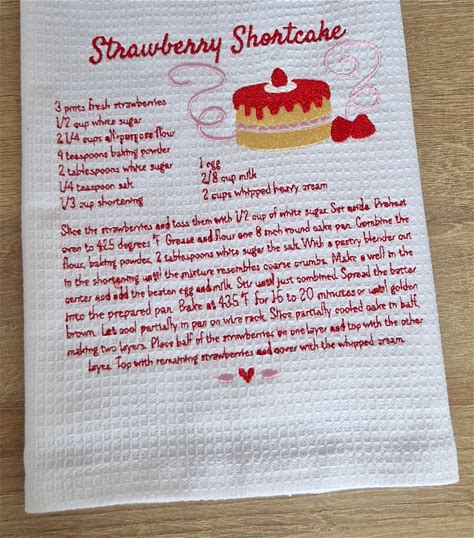 Strawberry Shortcake
3 pints fresh strawberries
1/2 cup white sugar
2 1/4 cups all-purpose flour
4 teaspoons baking powder
2 tablespoons white sugar
1/4 teaspoon salt
1/3 cup shortening
1 egg
2/8 cup milk
2 cups whipped heavy cream
Slice the strawberries and toss them with 1/2 cup of white sugar. Set aside. Preheat
oven to 425 degrees °F. Grease and flour one 8 inch round cake pan. Combine the
flour, baking powder, 2 tablespoons white sugar the salt. With a pastry blender cut
in the shortening until the mixture resembles coarse crumbs. Make a well in the
center and add the beaten egg and milk. Stir until just combined. Spread the batter
into the prepared pan. Bake at 435°F for 16 to 20 minutes or until golden
brown. Let cool partially in pan on wire rack. Slice partially cooled cake in half,
making two layers. Place half of the strawberries on one layer and top with the other
layer. Top with remaining strawberries and cover with the whipped cream.